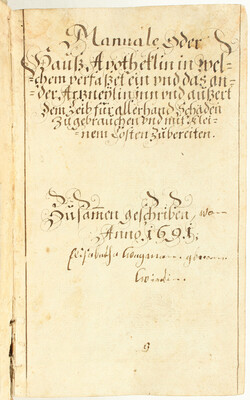 Manuale Oder
Hausz Apothecklin in wel-
chem verfasset ein vnd das an-
der Artzneylin, inn vnd auszert
dem Leib für allerhand Schäden
Zugebrauchen vnd mit klei-
nem Costen Zubereiten.
Zusamen geschriben,
Anno 1691.
Elisabetha